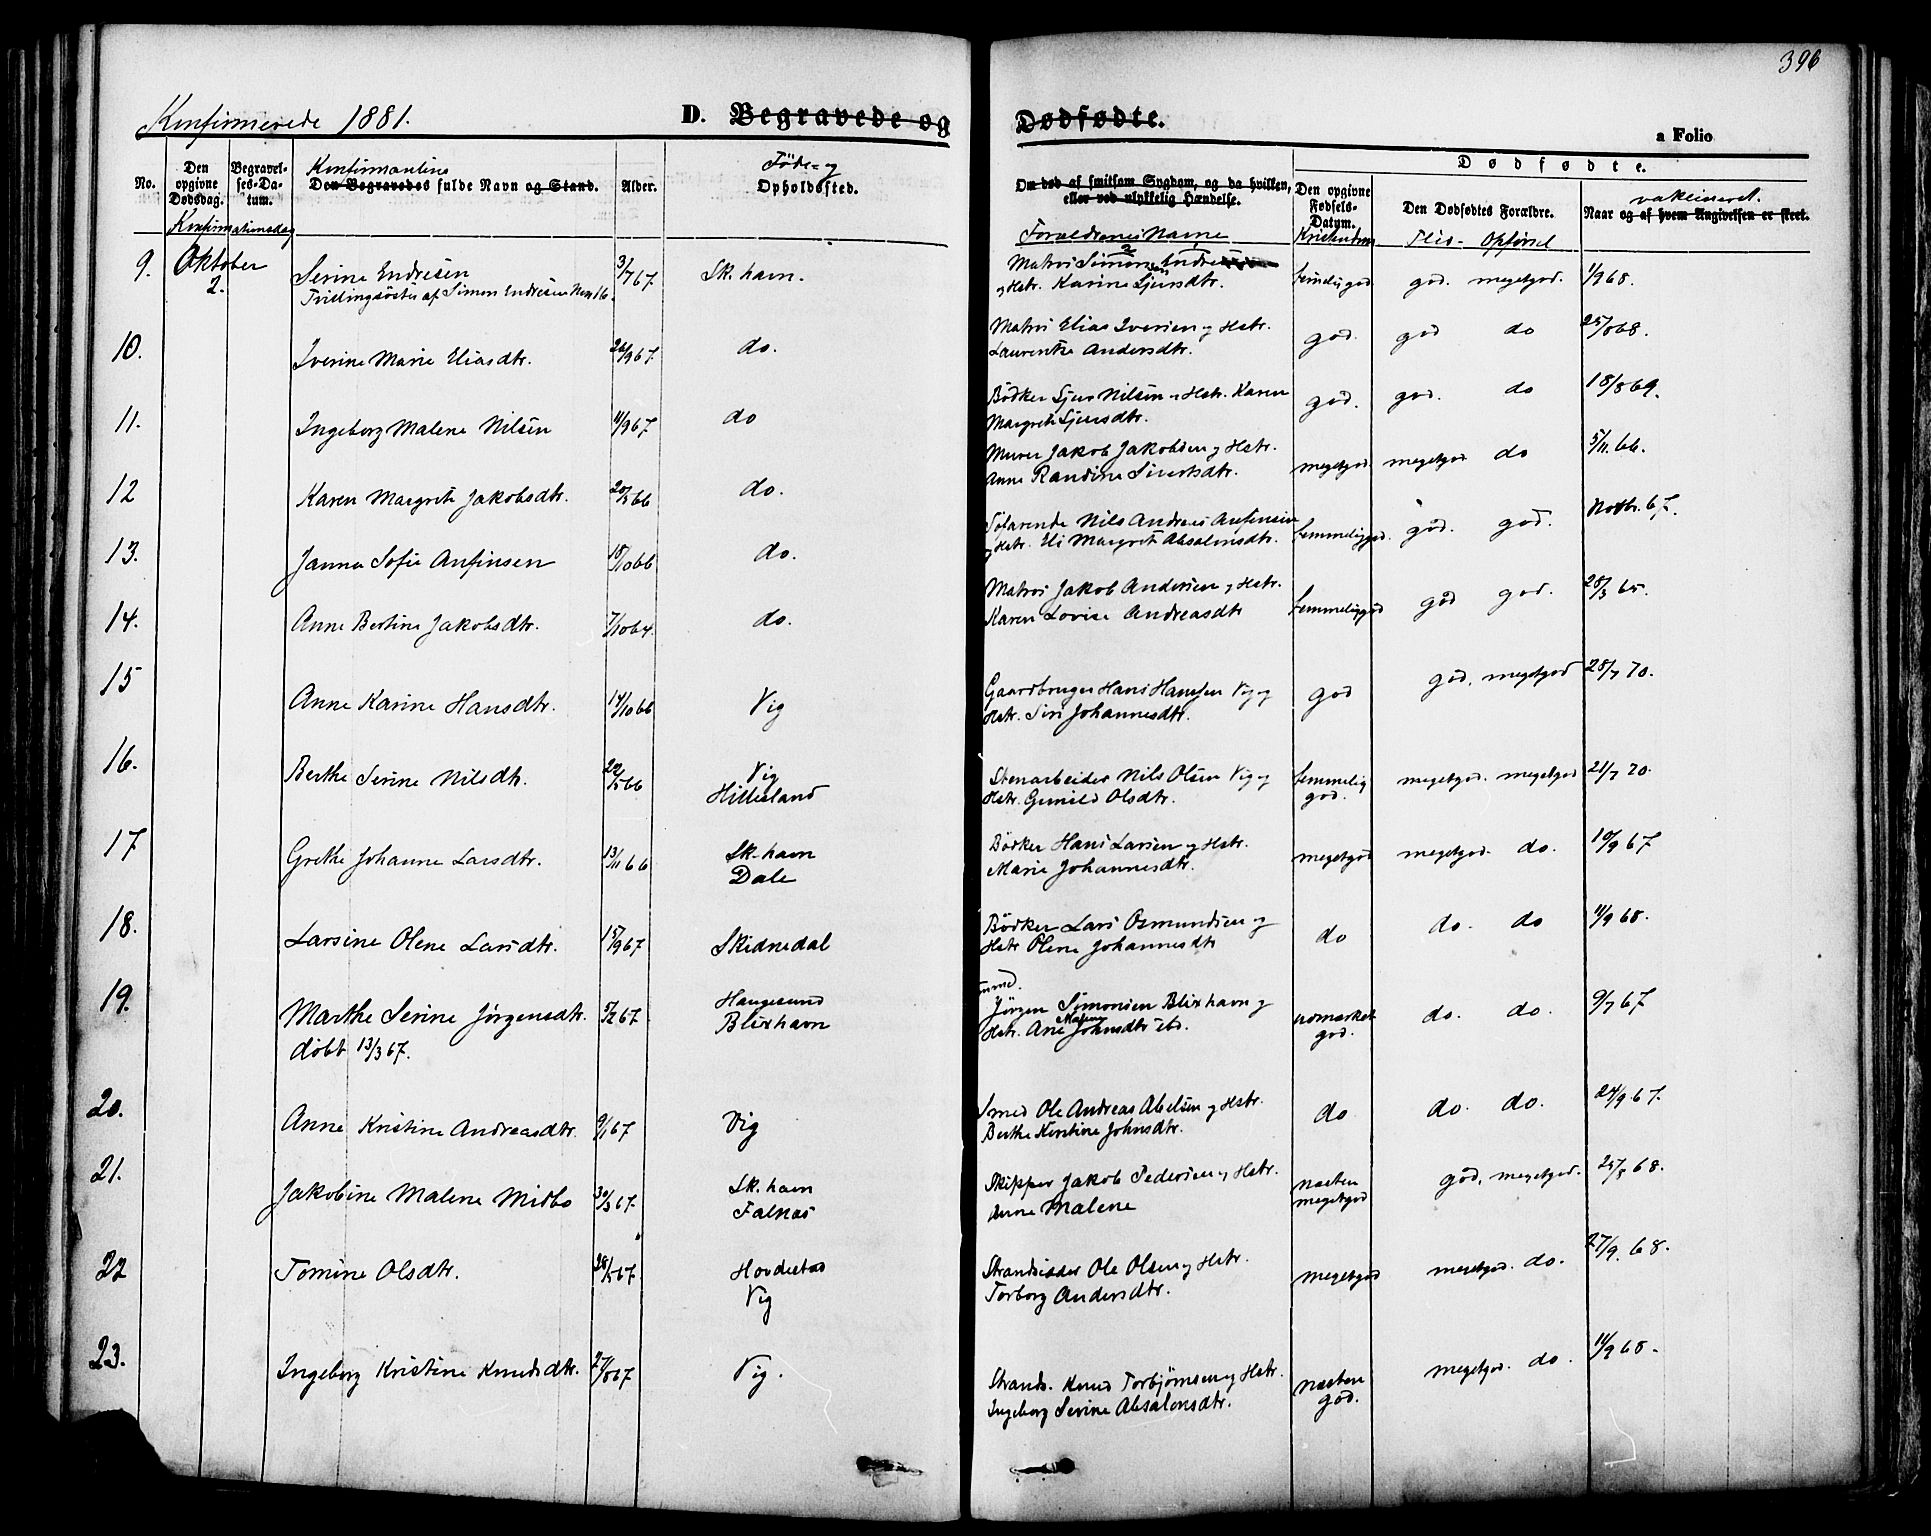 396
Konfirmerede 1881.
D. Begravede og Dødfødte.
a Folio
No.
Den opgivne Dødsdag.
Begravelses-Datum.
Konfirmantens
Den Begravedes fulde Navn og Stand.
Alder.
Føde- og
Opholdssted.
Om død af smitsom Sygdom, og da hvilken, eller ved ulykkelig Hændelse.
Dødfødte.
Den opgivne Fødsels-Datum.
Den Dødfødtes Forældre.
vakcineret.
Naar og af hvem Angivelsen er skeet.
Konfirmationsdag
Forældrenes Navne
Kristendom
Flid - Opførsel
9. Oktober 2. Serine Endresen 3/7 67 Sk.havn. Matros Simon Endresen god. megetgod. 1/9 68.
Tvillingsøster af Simon Endresen No 16. og Hstr. Karine Sjursdtr.
10. Iverine Marie Eliasdtr. 26/9 67. do. Matros Elias Iversen og Hstr. god. god do 25/8 68.
Laurentse Andersdtr.
11. Ingeborg Malene Nilsen 11/9 67 do Bødker Sjur Nilsen og Hstr. Karen god. god. do 18/8 69.
Margrete Sjursdtr.
12 Karen Margrete Jakobsdtr. 20/3 66 do. Murer Jakob Jakobsen og Hstr. megetgod. megetgod do 5/11 66.
Anne Randine Sivertsdtr.
13. Janna Sofie Anfinsen 18/10 66 do. Søfarende Nils Andreas Anfinsen temmeliggod. god. god. Novbr. 67.
og Hstr. Eli Margrete Absalonsdtr.
14. Anne Bertine Jakobsdtr. 7/10 64. do. Matros Jakob Andersen og Hstr. temmeliggod god god. 28/3 65.
Karen Lovise Andreasdtr
15 Anne Karine Hansdtr. 14/10 66 Vig Gaardbruger Hans Hansen Vig og god god, megetgod 28/7 70.
Hstr. Siri Johannesdtr.
16. Berthe Serine Nilsdtr. 22/5 66 Vig Stenarbeider Nils Olsen Vig og temmelig megetgod. megetgod 21/7 70.
Hillesland Hstr. Gunild Olsdtr. god.
17 Grethe Johanne Larsdtr. 13/11 66 Sk.havn Bødker Hans Larsen og Hstr. megetgod megetgod. do. 10/9 67
Dale Marie Johannesdtr.
18. Larsine Olene Larsdtr. 15/9 67 Skidnedal Bødker Lars Osmundsen og do do. do 11/9 68.
Hstr Olene Johannesdtr
19. Marthe Serine Jørgensdtr. 5/2 67 Haugesund Jørgen Simonsen Blixhavn og udmærket do. do. 9/7 67
døbt 13/3 67. Blixhavn Hstr. Ane Malene Johnsdtr god.
20. Anne Kristine Andreasdtr. 9/1 67 Vig Smed Ole Andreas Abelsen og Hstr. do do. do. 24/9 67.
Berthe Kirstine Johnsdtr.
21. Jakobine Malene Midbø 30/3 67. Sk.havn Skipper Jakob Pedersen og Hstr. næsten god, megetgod. 25/8 68.
Falnæs Anne Malene megetgod
22 Tomine Olsdtr. 28/5 67. Hovdestad Strandsidder Ole Olsen og Hstr. megetgod megetgod. do. 27/9. 68.
Vig Torborg Andersdtr.
23. Ingeborg Kristine Knudsdtr. 27/8 67 Vig. Strands. Knud Torbjørnsen og Hstr. næsten megetgod. do. 11/9 68.
Ingeborg Serine Absalonsdtr. god.